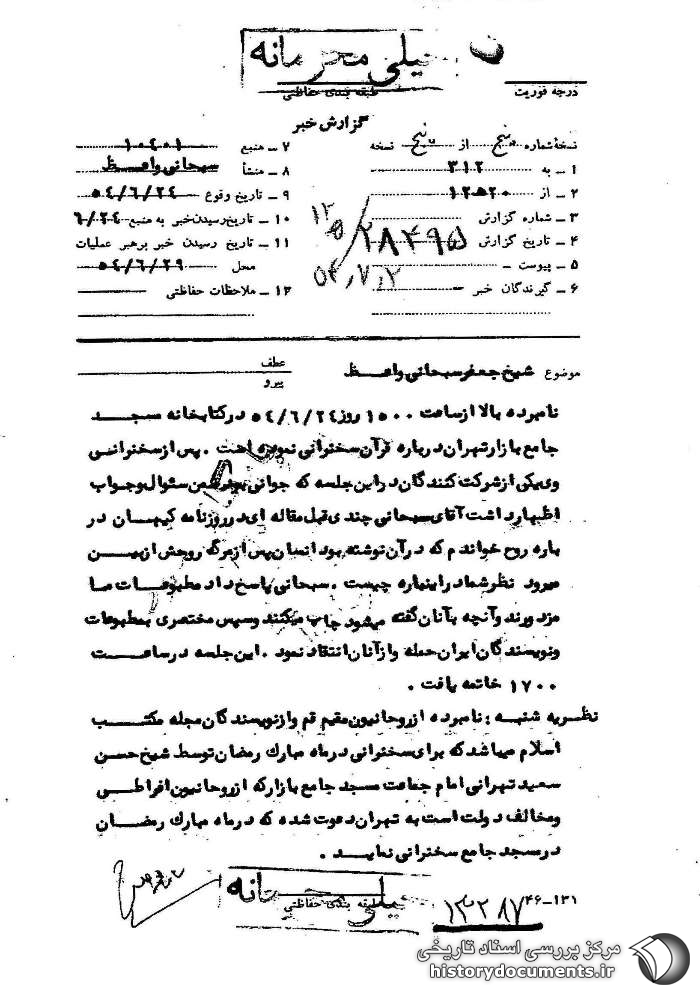 خیلی محرمانه
طبقه بندی حفاظتی
درجه فوریت
گزارش خبر
نسخهٔ شماره پنج از پنج نسخه
۱ ـ به ۳۱۲
۲ ـ از ۱۲ ه‍ ۲۰
۳ ـ شماره گزارش
۴ ـ تاریخ گزارش
۵ ـ پیوست ـ
۶ ـ گیرندگان خبر ـ
۷ ـ منبع ۱۰۴۰۱
۸ ـ منشأ سبحانی واعظ
۹ ـ تاریخ وقوع ۵۴/۶/۲۴
۱۰ ـ تاریخ رسیدن خبر به منبع ۶/۲۴
۱۱ ـ تاریخ رسیدن خبر برهبر عملیات
محل ۵۴/۶/۲۹
۱۲ ـ ملاحظات حفاظتی
۲۸۴۹۵
۵۴,۷,۲
موضوع شیخ جعفر سبحانی واعظ
عطف
پیرو
نامبرده بالا از ساعت ۱۵۰۰ روز ۵۴/۶/۲۴ در کتابخانه مسجد
جامع بازار تهران درباره قرآن سخنرانی نموده است . پس از سخنرانی
وی یکی از شرکت کنندگان در این جلسه که جوانی بود ضمن سئوال وجواب
اظهار داشت آقای سبحانی چندی قبل مقاله ای در روزنامه کیهان در
باره روح خواندم که در آن نوشته بود انسان پس از مرگ روحش از بین
میرود نظر شما در اینباره چیست . سبحانی پاسخ داد مطبوعات ما
مزدورند وآنچه بآنان گفته میشود چاپ میکنند وسپس مختصری بمطبوعات
ونویسندگان ایران حمله واز آنان انتقاد نمود . این جلسه در ساعت
۱۷۰۰ خاتمه یافت .
نظریه شنبه : نامبرده از روحانیون مقیم قم واز نویسندگان مجله مکتب
اسلام میباشد که برای سخنرانی در ماه مبارک رمضان توسط شیخ حسن
سعید تهرانی امام جماعت مسجد جامع بازار که از روحانیون افراطی
ومخالف دولت است به تهران دعوت شده که در ماه مبارک رمضان
در مسجد جامع سخنرانی نماید .
خیلی محرمانه
طبقه بندی حفاظتی
۴۶-۱۳۱
مرکز بررسی اسناد تاریخی
historydocuments.ir